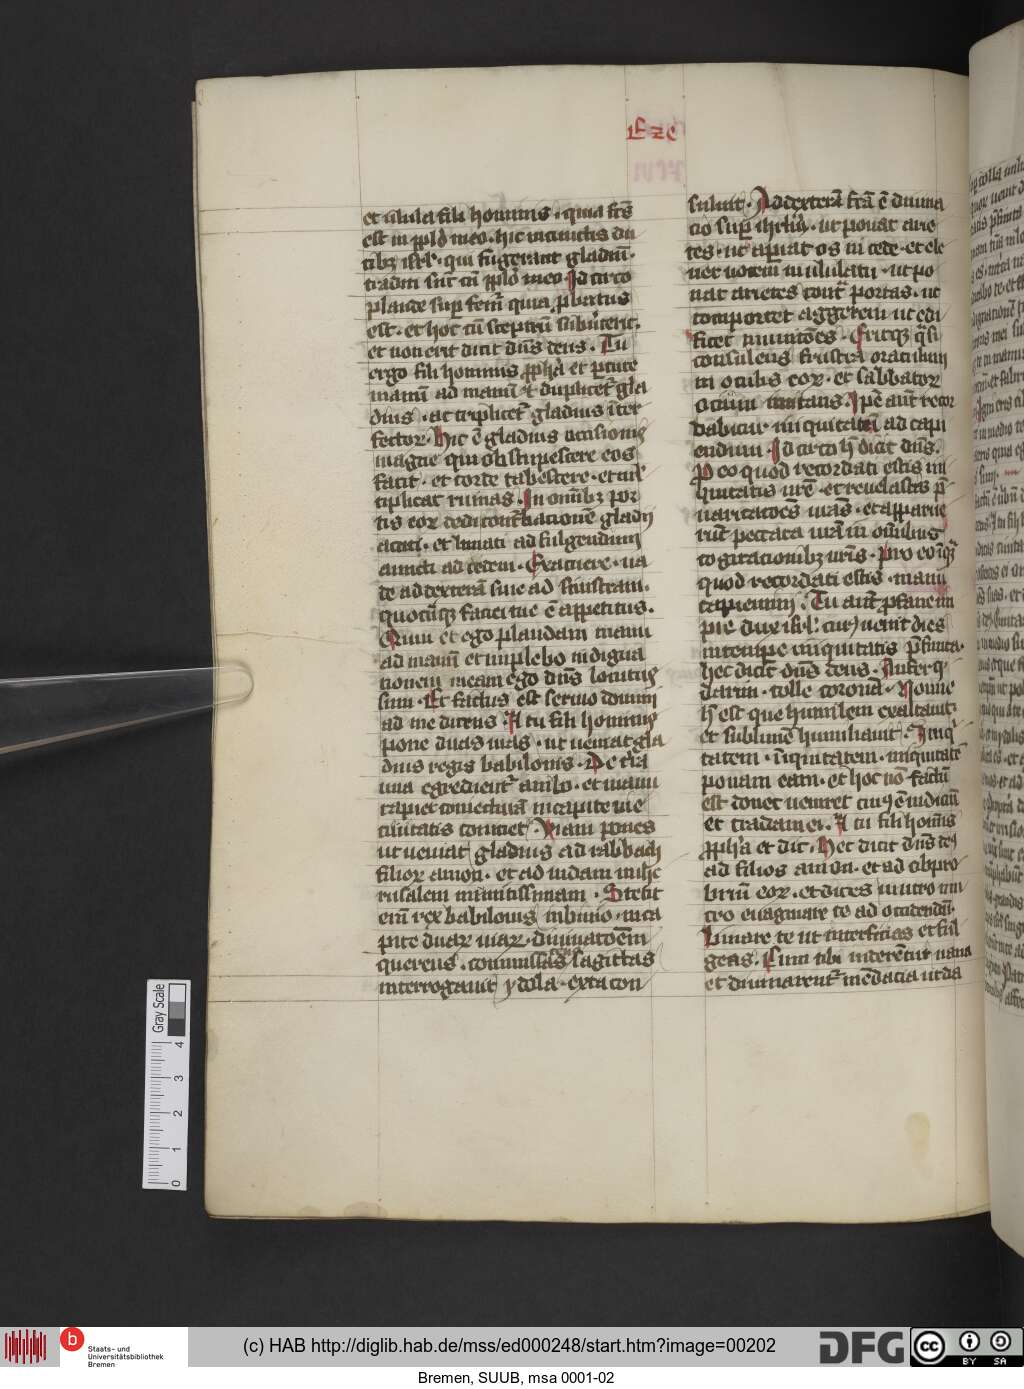 Eze
et ulula fili hominis · quia fr̄s
est in ppl̄o meo · hic in cunctis du
cibꝫ isrl̄ · qui fugerant gladiū ·
traditi sūt cū ppl̄o meo Id circo
plaude sup̄ femꝰ quia ꝓbatus
est · et hoc cū sceptrū subuerit̉ ·
et non erit dicit dn̄s deus · Tu
ergo fili hominis ꝓph̄a et ꝑcute
manū ad manū ⁊ duplicet̉ gla
dius · ac triplicet̉ gladius īter
fector · Hic ē gladius occisionis
magne qui obstupescere eos
facit · et corde tabescere · et mul
tiplicat ruinas · In omībꝫ por
tis eoꝝ dedi cont̉bacionē gladij
acuti · et limati ad fulgendum
amicti ad cedem · Exacuere · ua
de ad dexterā siue ad sinistram ·
quocūqꝫ faciei tue ē appetitus ·
Quin et ego plaudam manu
ad manū et implebo indigna
tionem meam ego dn̄s locutus
sum · Et factus est sermo domini
ad me dicens · A tu fili hominis
pone duas uias · ut ueniat gla
dius regis babilonis · De t̉ra
una egredient̉ ambo · et manu
capiet coniecturā in capite uie
ciuitatis coniciet · Uiam pones
ut ueniat gladius ad rabbath
filioꝝ amon · et ad iudam in ihe
rusalem munitissimam · Stetit
em̄ rex babilonis in biuio · in ca
pite duaꝝ uiaꝝ · diuinatōem
querens · commissas sagittas
interrogauit ydola · exta con
suluit · Ad dexterā fc̄ā ē diuina
cio sup̄ ihrl̄m · ut ponat arie
tes · ut aperiat os in cede · et ele
uet uocem in ululatu · ut po
nat arietes cont̉ portas · ut
comportet aggerem ut edi
ficet municōes · Eritqꝫ q̄si
consulens frustra oraculum
in oculis eoꝝ · et sabbatoꝝ
ocium imitans · Ip̄e aut̄ recor
dabitur iniquitatē ad capi
endum · Id circo h̄ dicit dn̄s ·
Pro eo quod recordati estis ini
quitatis ur̄e · et reuelastis p̄
uaricatōes uras · et apparue
rūt peccata ur̄a in omībus
cogitacionibꝫ ur̄is · Pro eo īqꝫ
quod recordati estis · manu
capiemini · Tu aut̄ ꝓfane im
pie dux isrl̄ cuiꝰ uenit dies
in tempe iniquitatis p̄finita ·
hec dicit dn̄s deus · Aufer cy
darim · tolle coronā · Nonne
h̄ est que humilem exaltauit ·
et sublimē humiliauit · Iniqꝫ
tatem · īiquitatem · iniquitatē
ponam eam · et hoc nō factū
est donec ueniret cuiꝰ ē iudiciū
et tradam ei · A tu fili hoīnis
ꝓph̄a et dic · Hec dicit dn̄s deꝰ
ad filios amon · et ad obpro
briū eoꝝ · et dices mucro mu
cro euaginate te ad occidendū ·
Limare te ut interficias et ful
geas · Cum tibi uiderēnt̉ uana
et diuinarent̉ mēdacia ut da
Gray Scale
0 1 2 3 4
b
Staats- und
Universitätsbibliothek
Bremen
(c) HAB http://diglib.hab.de/mss/ed000248/start.htm?image=00202
DFG
cc BY SA
Bremen, SUUB, msa 0001-02